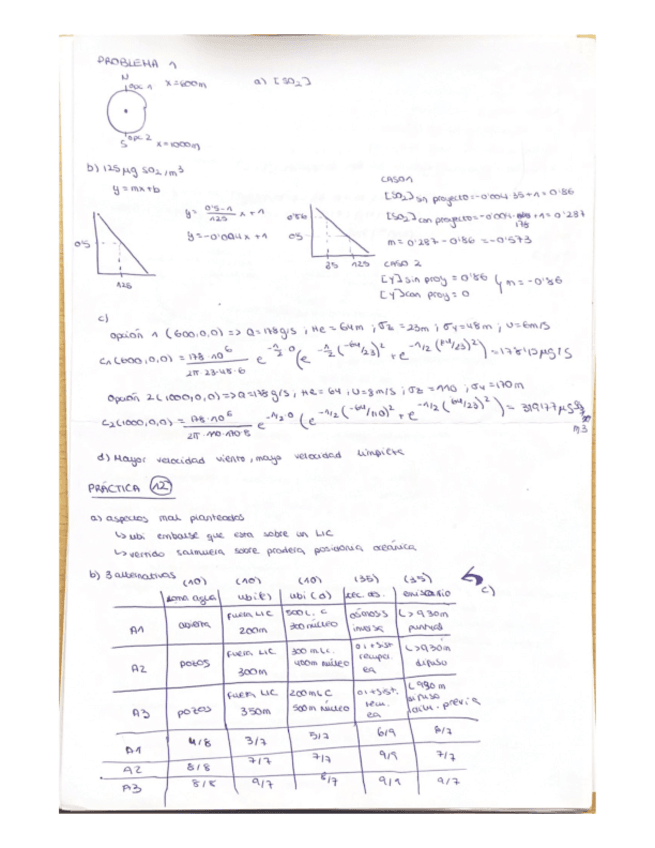 PROBLEMA 1
N
opc 1 x=600m
a) [SO₂]
S opc 2 x=1000m
b) 125 μg SO₂/m³
y = mx+b
y = 0'5-1/125 x + 1
y = -0'004x + 1
0'5
125
0'86
0'5
35 125
CASO 1
[SO₂] sin proyecto = -0'004·35+1 = 0'86
[SO₂] con proyecto = -0'004·178+1 = 0'287
m = 0'287 - 0'86 = -0'573
CASO 2
[Y] sin proy = 0'86
[Y] con proy = 0
m = -0'86
c)
Opción 1 (600,0,0) => Q = 178 g/s ; He = 64m ; σz = 23m ; σy = 48m ; U = 6m/s
C1(600,0,0) = 178·10⁶/2π·23·48·6 e^-1/2 0 (e^-1/2(-64/23)² + e^-1/2(64/23)²) = 178'12 μg/s
Opción 2 (1000,0,0) => Q = 178 g/s, He = 64, U = 8m/s ; σz = 110 ; σy = 170m
C2(1000,0,0) = 178·10⁶/2π·110·170·8 e^-1/2 0 (e^-1/2(-64/110)² + e^-1/2(64/23)²) = 319'177 μg
m3
d) Mayor velocidad viento, mayo velocidad limpieza
PRÁCTICA 12
a) aspectos mal planteados
↳ ubi embalse que esta sobre un LIC
↳ vertido salmuera sobre pradera posidonia oceánica
b) 3 alternativas (10) (10) (10) (35) (35) c)
toma agua ubi(t) ubi(a) emisario
A1 abierta fuera LIC 200m 500 L.C 300 núcleo osmosis inversa L>930m puntual
A2 pozos fuera LIC 300m 300 m L.C. 400m núcleo oi+sist recup ea L>930m difuso
A3 pozos fuera LIC 350m 200 m L C 500m núcleo oi+sist. recu. ea L 980m difuso previa
A1 4/8 3/7 5/7 6/9
A2 8/8 7/7 7/7 9/9 7/7
A3 8/8 9/7 9/9 9/7